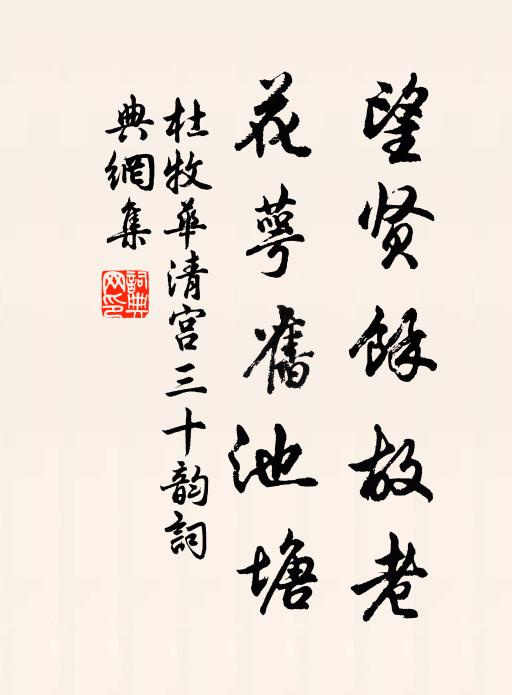 望贤餘故老
花萼舊池塘
杜牧華清宫三十韵詞
典網集
詞典网印